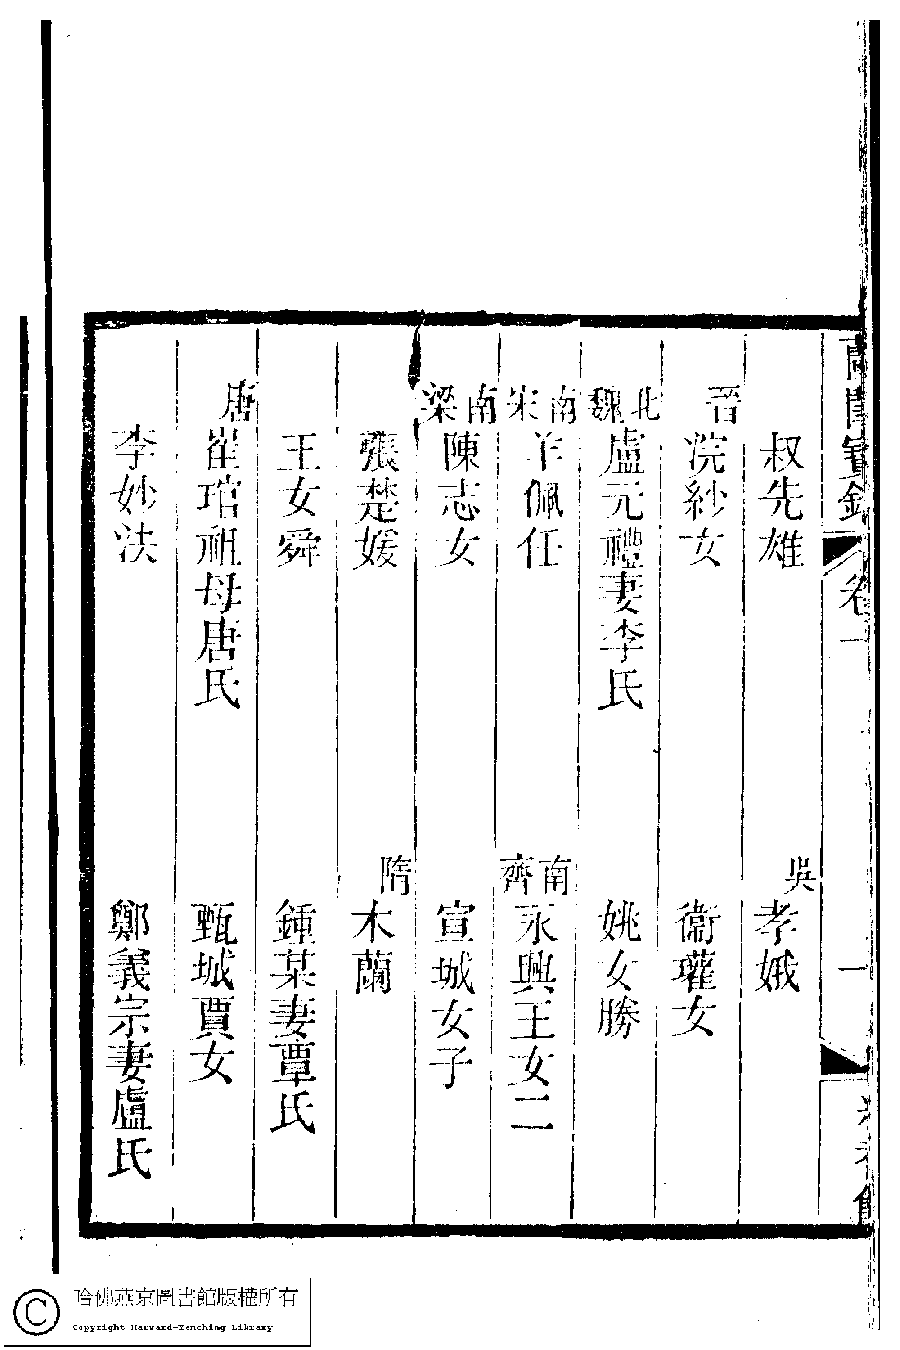 叔先雄　吳　孝娥
晉　浣紗女　衞瓘女
北魏　盧元禮妻李氏　姚女勝
南宋　羊佩任　南齊　永興王女二
南梁　陳志女　宣城女子
張楚媛　隋　木蘭
王女舜　鍾某妻覃氏
唐　崔琯祖母唐氏　甄城賈女
李妙法　鄭義宗妻盧氏
卷一　一
哈佛燕京圖書館版權所有
Copyright Harvard-Yenching Library